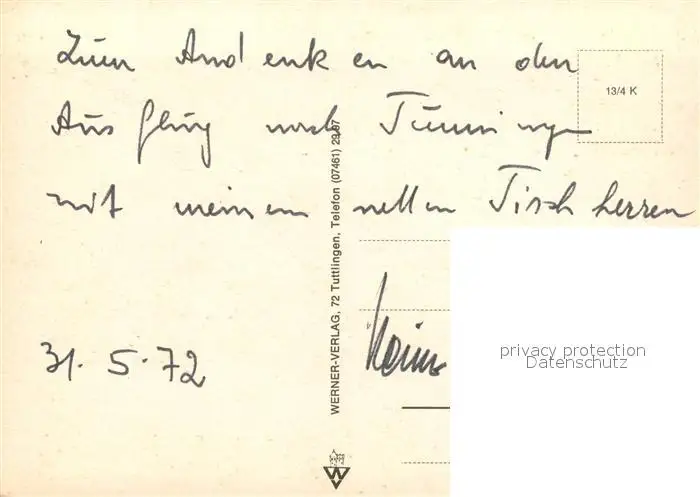 Zum Andenken an den
13/4 K
Ausflug nach Tunningen
mit meinem netten Tischherren
WERNER-VERLAG, 72 Tuttlingen, Telefon (07461) 29 97
31.5.72
Heinz
privacy protection
Datenschutz